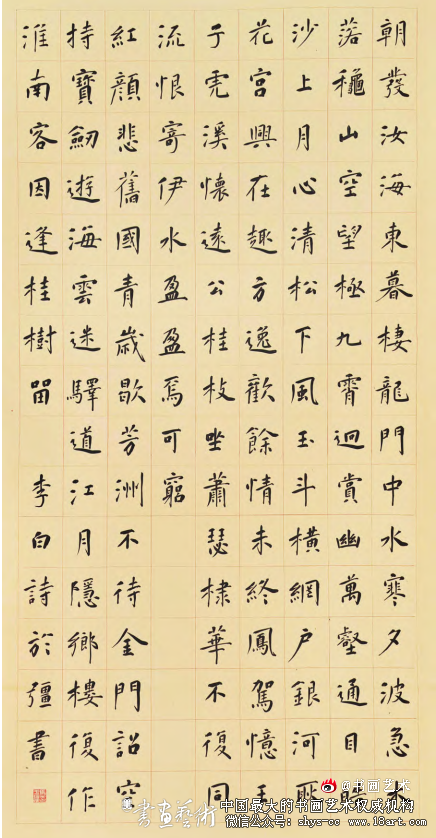 朝發汝海東暮棲龍門中水寒夕波急木
落穐山空望極九霄迥賞幽萬壑通目皓
沙上月心清松下風玉斗橫網戶銀河耿
花宮興在趣方逸歡餘情未終鳳駕憶王
子虎溪懷遠公桂枝坐蕭瑟棣華不復同
流恨寄伊水盈盈焉可窮
紅顏悲舊國青歲歇芳洲不待金門詔空
持寶劒遊海雲迷驛道江月隱鄉樓復作
淮南客因逢桂樹留 李白詩於彊書
@书画艺术
書画藝術
中国最大的书画艺术权威机构
微信公众号: shys-cc www.18art.com